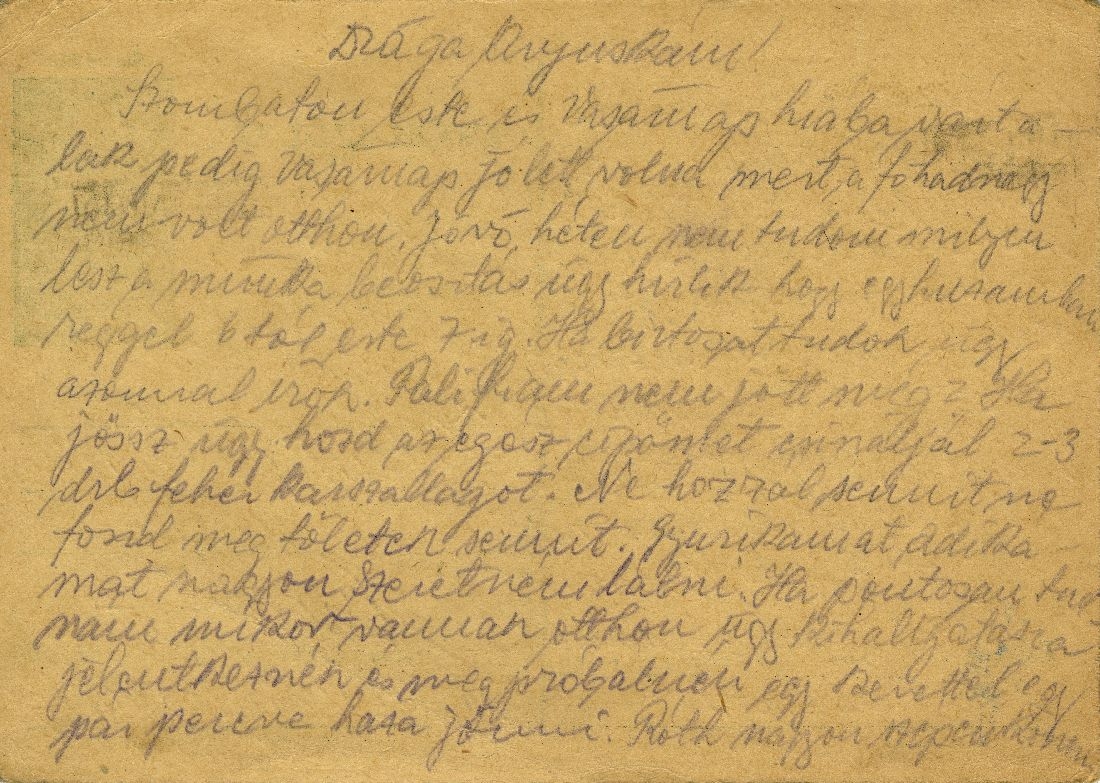 Drága Anyuskám!
Szombaton este és Vasárnap hiába várta-
lak pedig Vasárnap jó lett volna mert a főhadnagy
nem volt otthon. Jövő héten nem tudom milyen
lesz a munka beosztás úgy hírlik hogy egyhuzamban
reggel 6 tól este 7 ig. Ha biztosat tudok úgy
azonnal írok. Pali fiam nem jött még? Ha
jössz úgy hozd az egész cipőmet csináljál 2-3
drb fehér karszallagot. Ne hozzál semmit ne
fond meg tőletek semmit. Gyurikámat Adiká-
mat nagyon szeretném látni. Ha pontosan tud
nám mikor vannak otthon úgy kihallgatásra
jelentkeznék és megpróbálnék egy kevéssel egy
pár percre haza jönni. Róth nagyon szépen